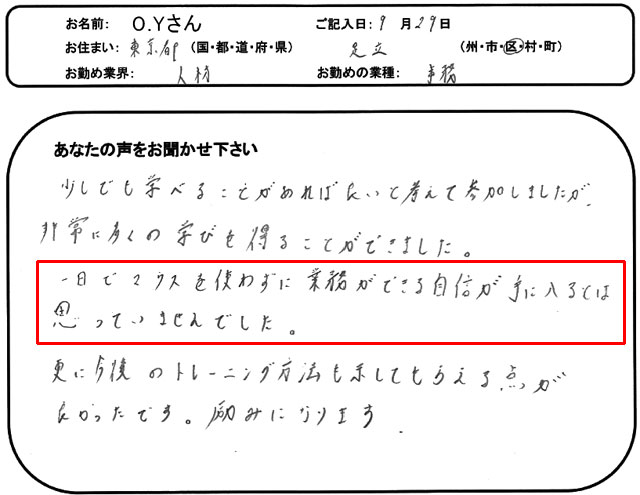 お名前: O.Yさん ご記入日: 9 月 29 日
お住まい: 東京都 (国・都・道・府・県) 足立 (州・市・区・村・町)
お勤め業界: 人材 お勤めの業種: 事務
あなたの声をお聞かせ下さい
少しでも学べることがあれば良いと考えて参加しましたが、
非常に多くの学びを得ることができました。
一日でマウスを使わずに業務ができる自信が手に入るとは
思っていませんでした。
更に今後のトレーニング方法も示してもらえる点が
良かったです。励みになります